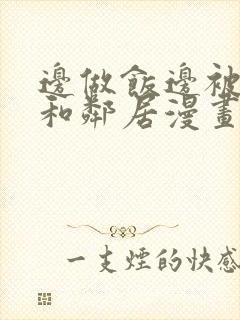 邊做飯邊被
和鄰居漫畫
一支煙的快感